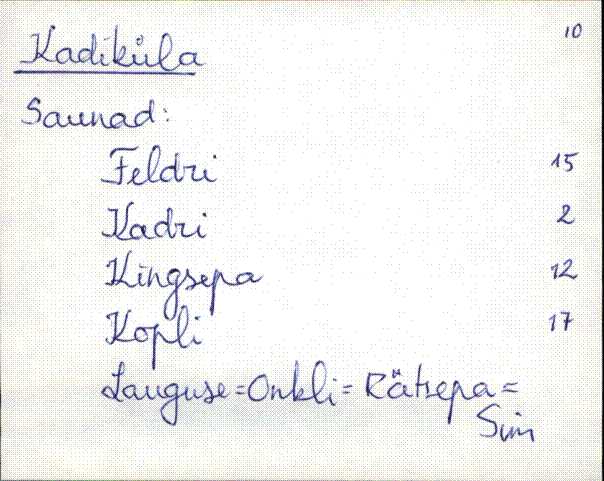 10
Kadiküla
Saunad:
Feldri 15
Kadri 2
Kingsepa 12
Kopli 17
Lauguse=Onkli=Rätsepa=
Sim